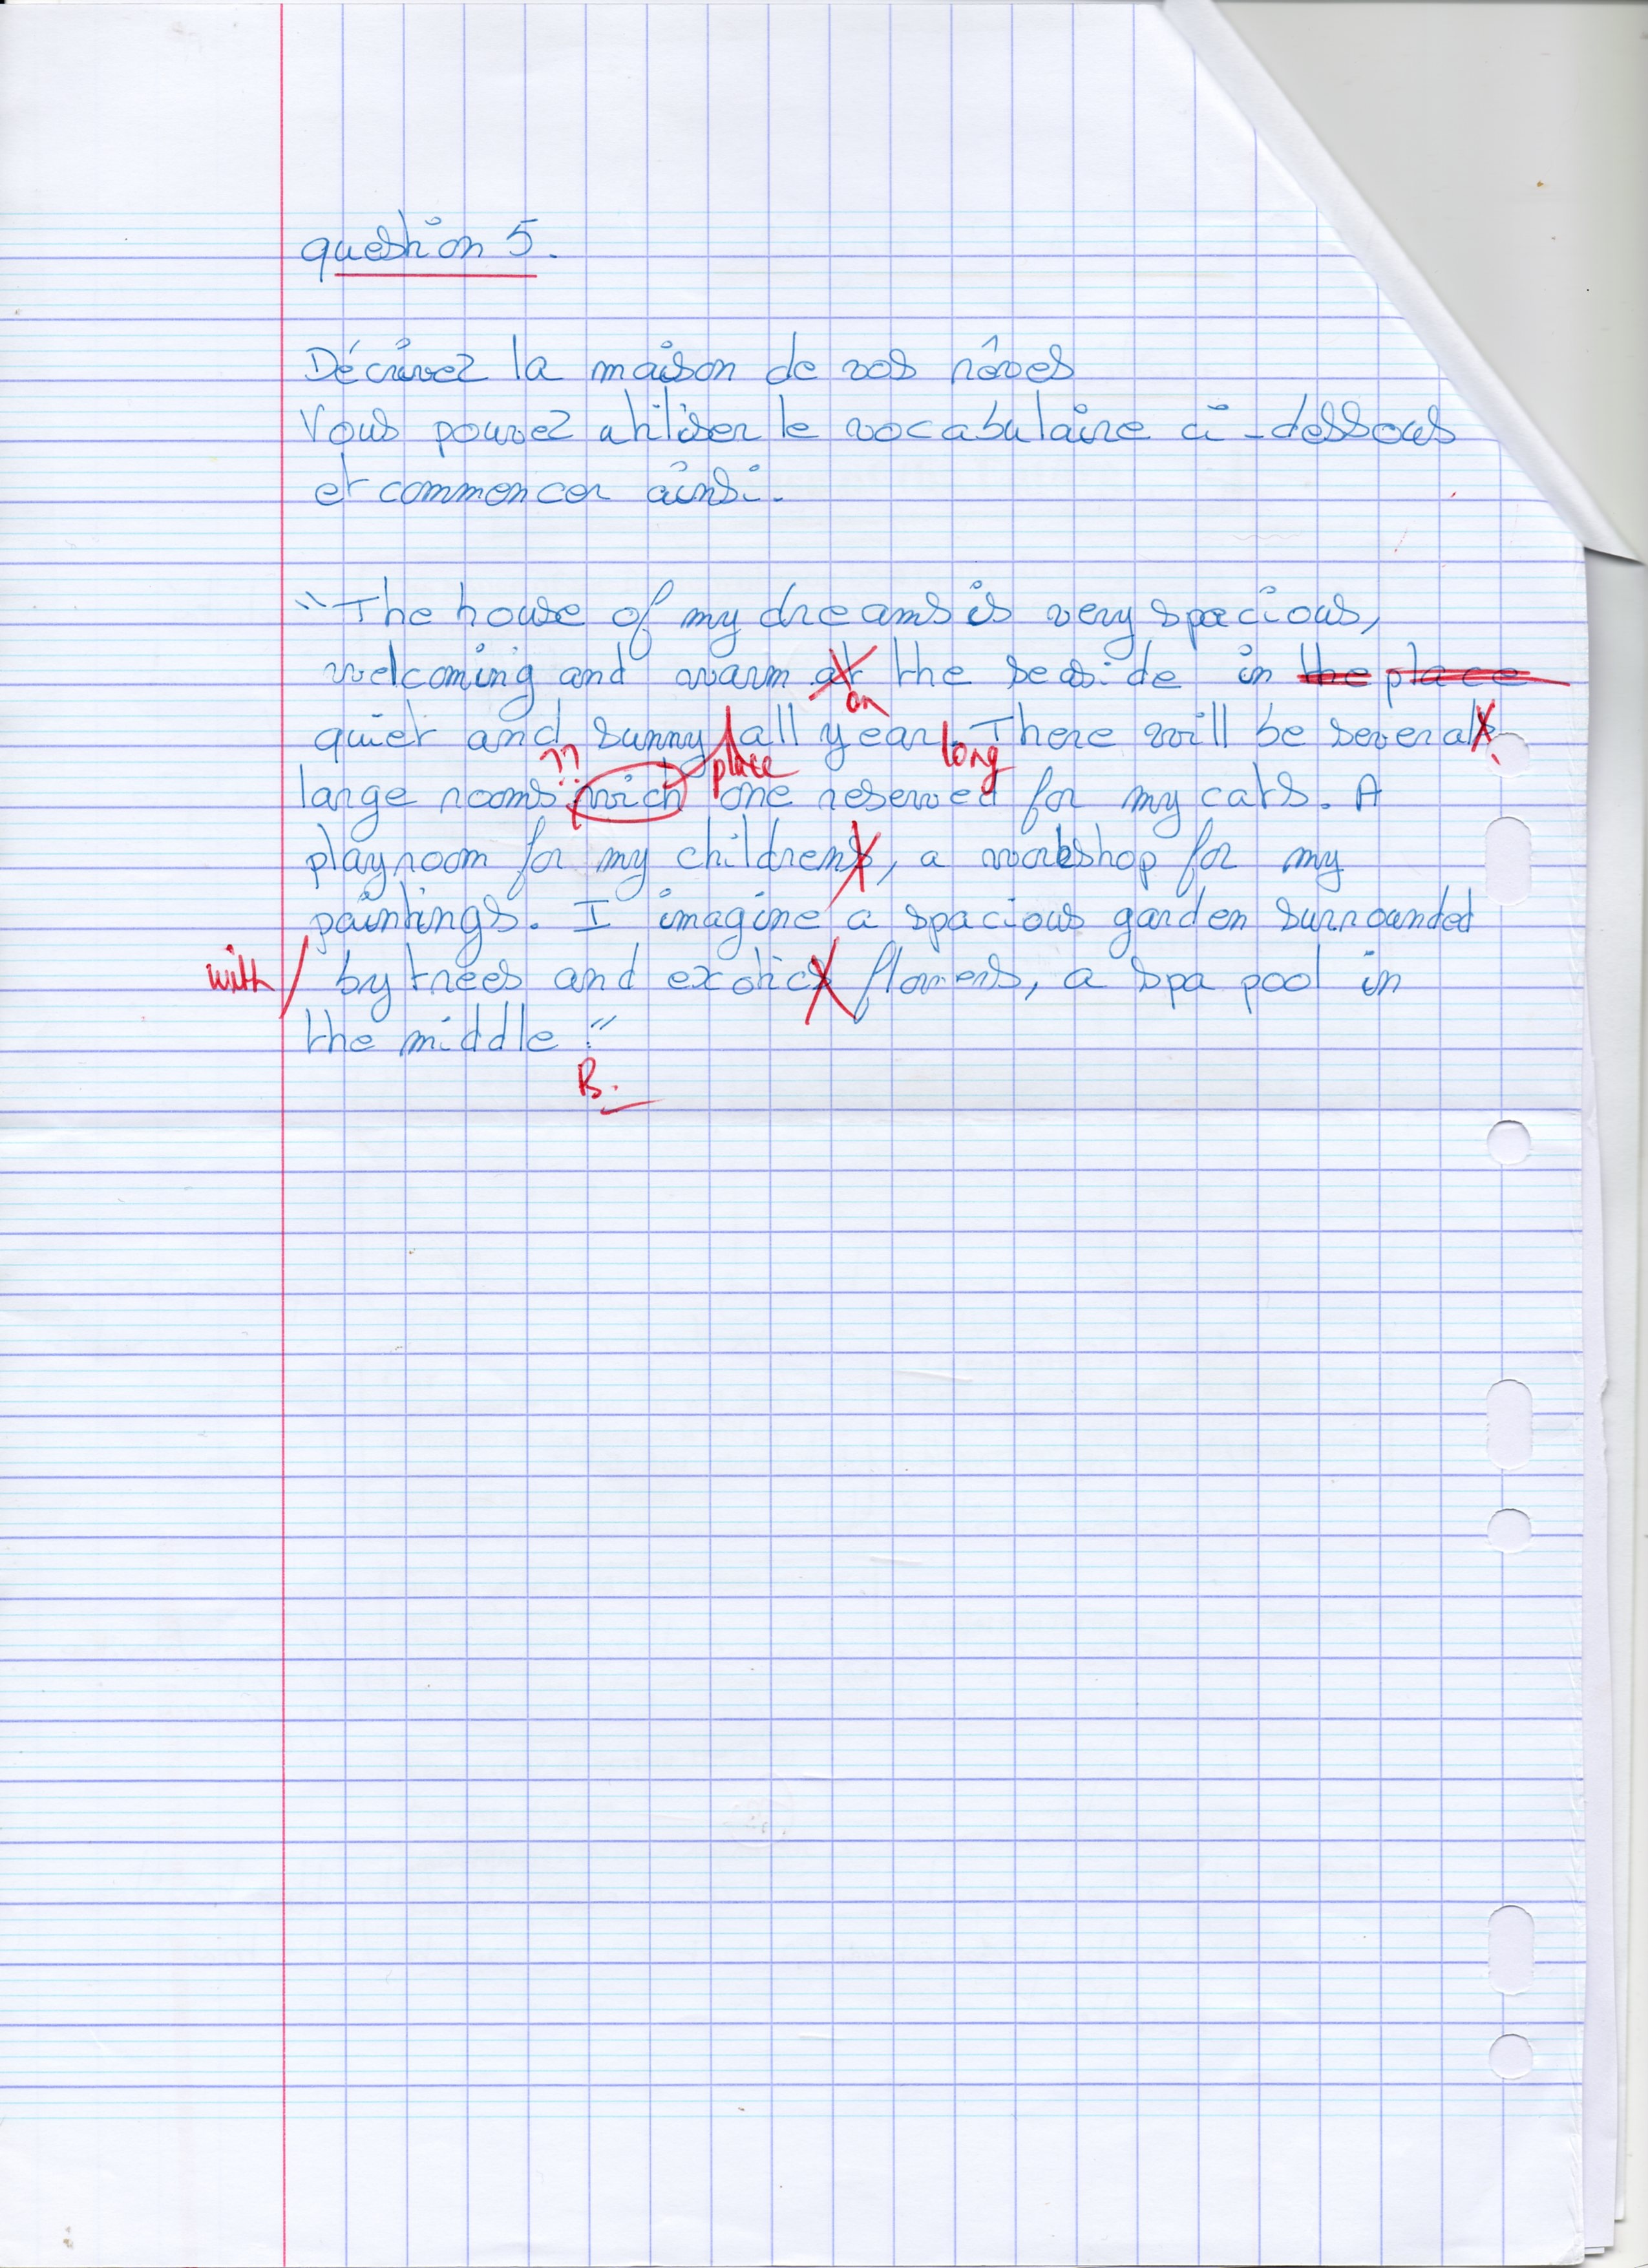 question 5.
Décrivez la maison de vos rêves
Vous pouvez utiliser le vocabulaire ci-dessous
et commencer ainsi.
"The house of my dreams is very spacious,
welcoming and warm at the seaside in the place
on
quiet and sunny all year. There will be severals
?? place long
large rooms wich one reserved for my cats. A
playroom for my childrens, a workshop for my
paintings. I imagine a spacious garden surrounded
with / by trees and exotics flowers, a spa pool in
the middle."
B.